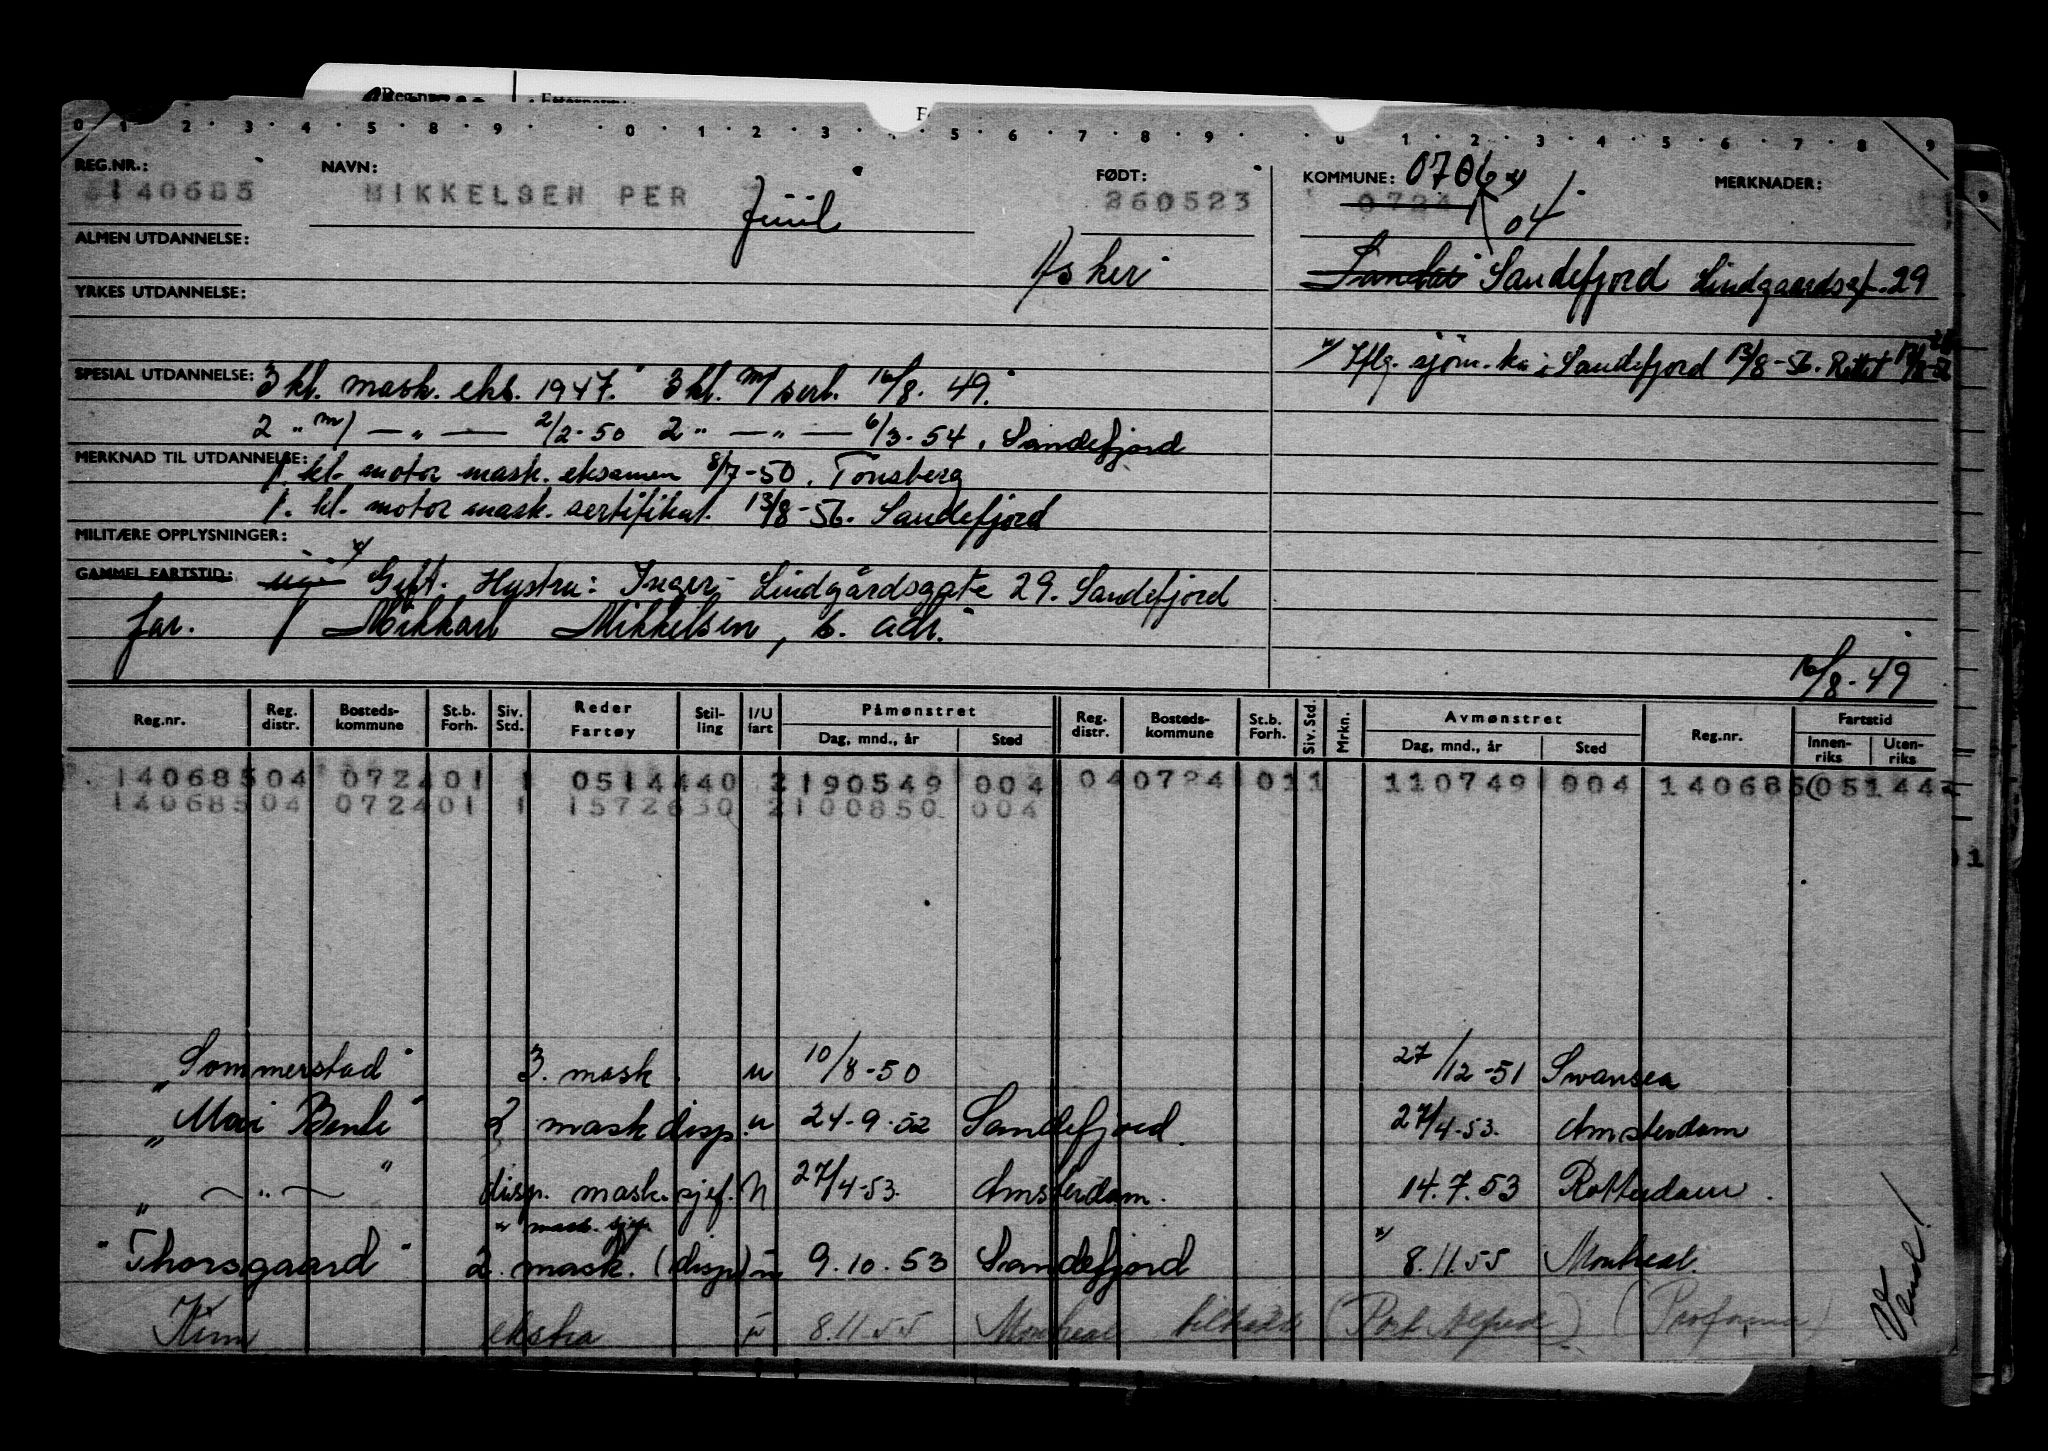 0 1 2 3 4 5 8 9 0 1 2 3 5 6 7 8 9 0 1 2 3 4 5 6 7 8 9
REG.NR.: NAVN: FØDT: KOMMUNE: 0706 x) MERKNADER:
140685 MIKKELSEN PER Juul 260523 0724 04
ALMEN UTDANNELSE:
Asker Sandar Sandefjord Lindgaardsgt. 29
YRKES UTDANNELSE:
x) Iflg. sjøm.ktr. i Sandefjord 13/8-56. Rettet
SPESIAL UTDANNELSE: 3 kl. mask. eks. 1947. 3 kl. m/ sert. 16/8. 49.
2 " m/ — " — 2/2-50 2 " — " — 6/3-54, Sandefjord
MERKNAD TIL UTDANNELSE:
1. kl. motor mask. eksamen 8/7-50. Tønsberg
1. kl. motor mask. sertifikat. 13/8-56. Sandefjord
MILITÆRE OPPLYSNINGER:
GAMMEL FARTSTID: ugi x) Gift. Hustru: Inger - Lindgårdsgate 29. Sandefjord
far. / Mikkael Mikkelsen, s. adr.
16/8-49
Reg.nr. Reg. distr. Bosteds-kommune St.b. Forh. Siv. Std. Reder Fartøy Stil-ling I/U fart Påmønstret Dag, mnd., år Sted Reg. distr. Bosteds-kommune St.b. Forh. Siv. Std. Mrkn. Avmønstret Dag, mnd., år Sted Reg.nr. Fartstid Innen-riks Uten-riks
140685 04 0724 01 1 0514440 2 190549 004 04 0724 01 1 110749 004 140685 051442
140685 04 0724 01 1 1572630 2 100850 004
"Sommerstad" 3. mask. u 10/8-50 27/12-51 Swansea
"Mai Bente" 2 mask disp. u 24-9-52 Sandefjord. 27/4-53. Amsterdam
" — " — " disp. mask.sjef. u 27/4-53. Amsterdam. 14.7.53 Rotterdam.
x mask. sjef
"Thorsgaard" 2. mask. (disp) u 9.10.53 Sandefjord x) 8.11.55 Montreal
Kim ekstra u 8.11.55 Montreal tiltrådt (Port Alfred) (Proforma)
Vend!